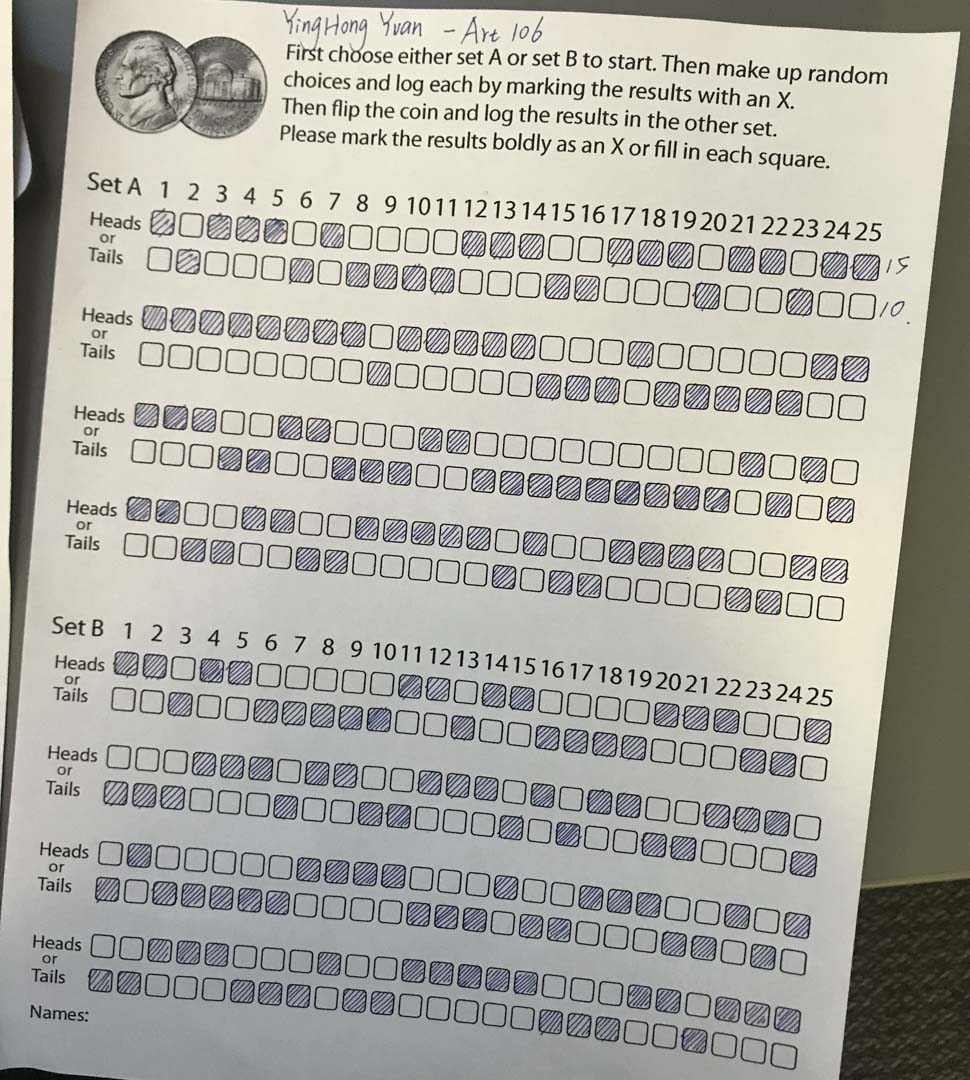 YingHong Yuan - Art 106
First choose either set A or set B to start. Then make up random
choices and log each by marking the results with an X.
Then flip the coin and log the results in the other set.
Please mark the results boldly as an X or fill in each square.
Set A 1 2 3 4 5 6 7 8 9 10 11 12 13 14 15 16 17 18 19 20 21 22 23 24 25
Heads 15
or
Tails 10.
Heads
or
Tails
Heads
or
Tails
Heads
or
Tails
Set B 1 2 3 4 5 6 7 8 9 10 11 12 13 14 15 16 17 18 19 20 21 22 23 24 25
Heads
or
Tails
Heads
or
Tails
Heads
or
Tails
Heads
or
Tails
Names: